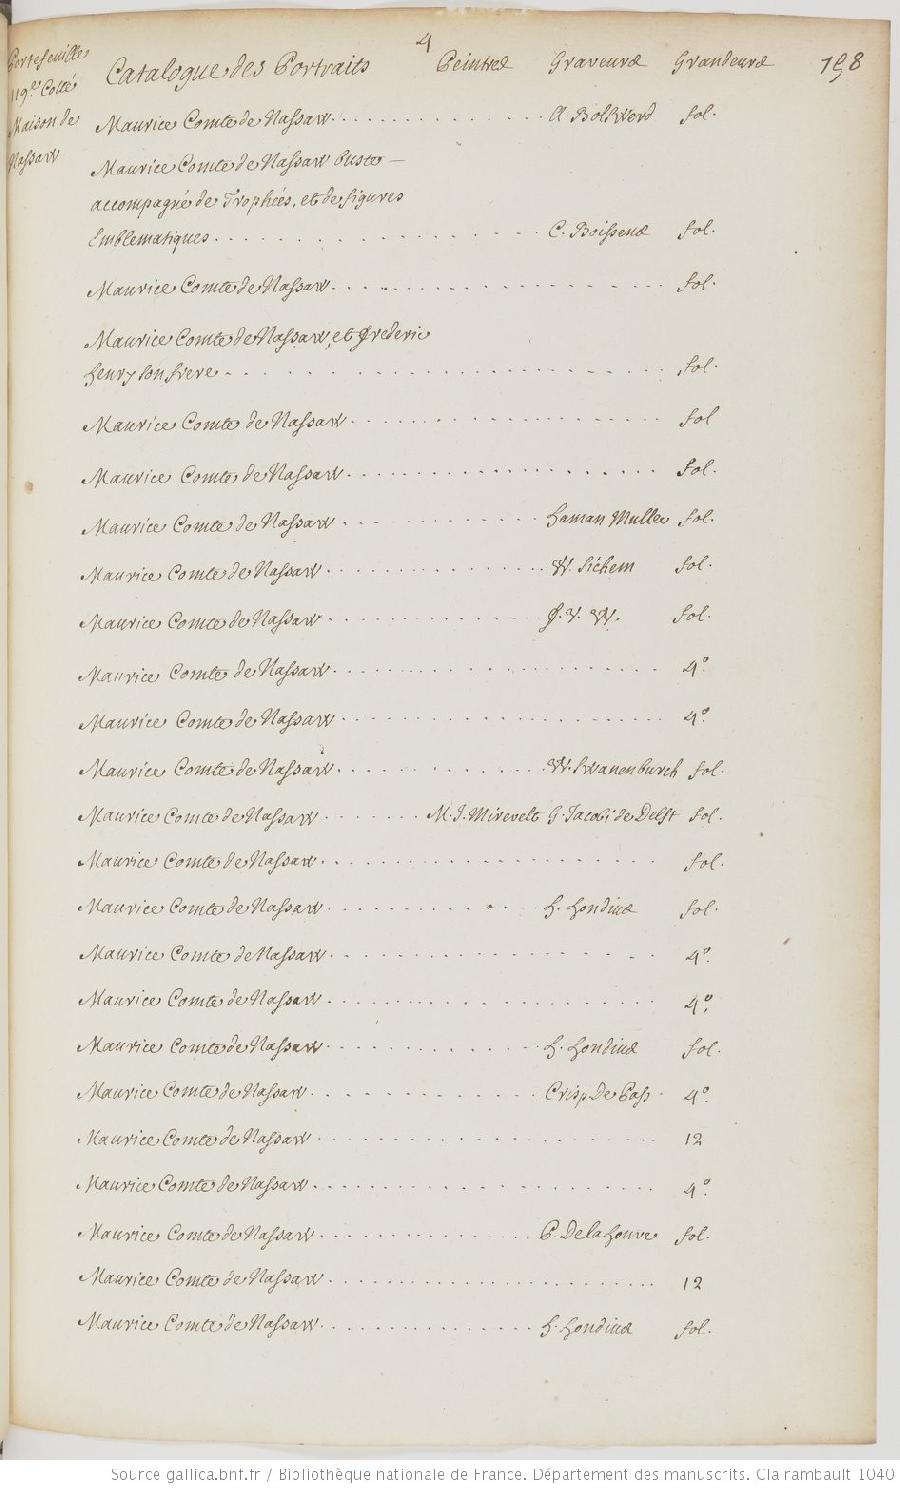 4
Portefeuilles
119e. Cotté
Maison de
Nassaw
Catalogue des Portraits Peintres Graveurs Grandeurs 158
Maurice Comte de Nassaw. A Bolswerd fol.
Maurice Comte de Nassaw buste
accompagné de Trophées, et de figures
Emblematiques. C. Boissens fol.
Maurice Comte de Nassaw. fol.
Maurice Comte de Nassaw, et frederic
henry son frere fol.
Maurice Comte de Nassaw fol
Maurice Comte de Nassaw. fol.
Maurice Comte de Nassaw haman Muller fol.
Maurice Comte de Nassaw. W. Sichem fol.
Maurice Comte de Nassaw. J. V. W. fol.
Maurice Comte de Nassaw. 4°
Maurice Comte de Nassaw 4°
Maurice Comte de Nassaw. W. Swanenburch fol.
Maurice Comte de Nassaw M. J. Mirevelt G. Jacobi de Delft fol.
Maurice Comte de Nassaw. fol.
Maurice Comte de Nassaw. h. hondius fol.
Maurice Comte de Nassaw. 4°
Maurice Comte de Nassaw. 4°
Maurice Comte de Nassaw. h. hondius fol.
Maurice Comte de Nassaw. Crisp. De Pass. 4°
Maurice Comte de Nassaw. 12
Maurice Comte de Nassaw. 4°
Maurice Comte de Nassaw. P. De la houve fol.
Maurice Comte de Nassaw. 12
Maurice Comte de Nassaw. h. hondius fol.
Source gallica.bnf.fr / Bibliothèque nationale de France. Département des manuscrits. Clairambault 1040